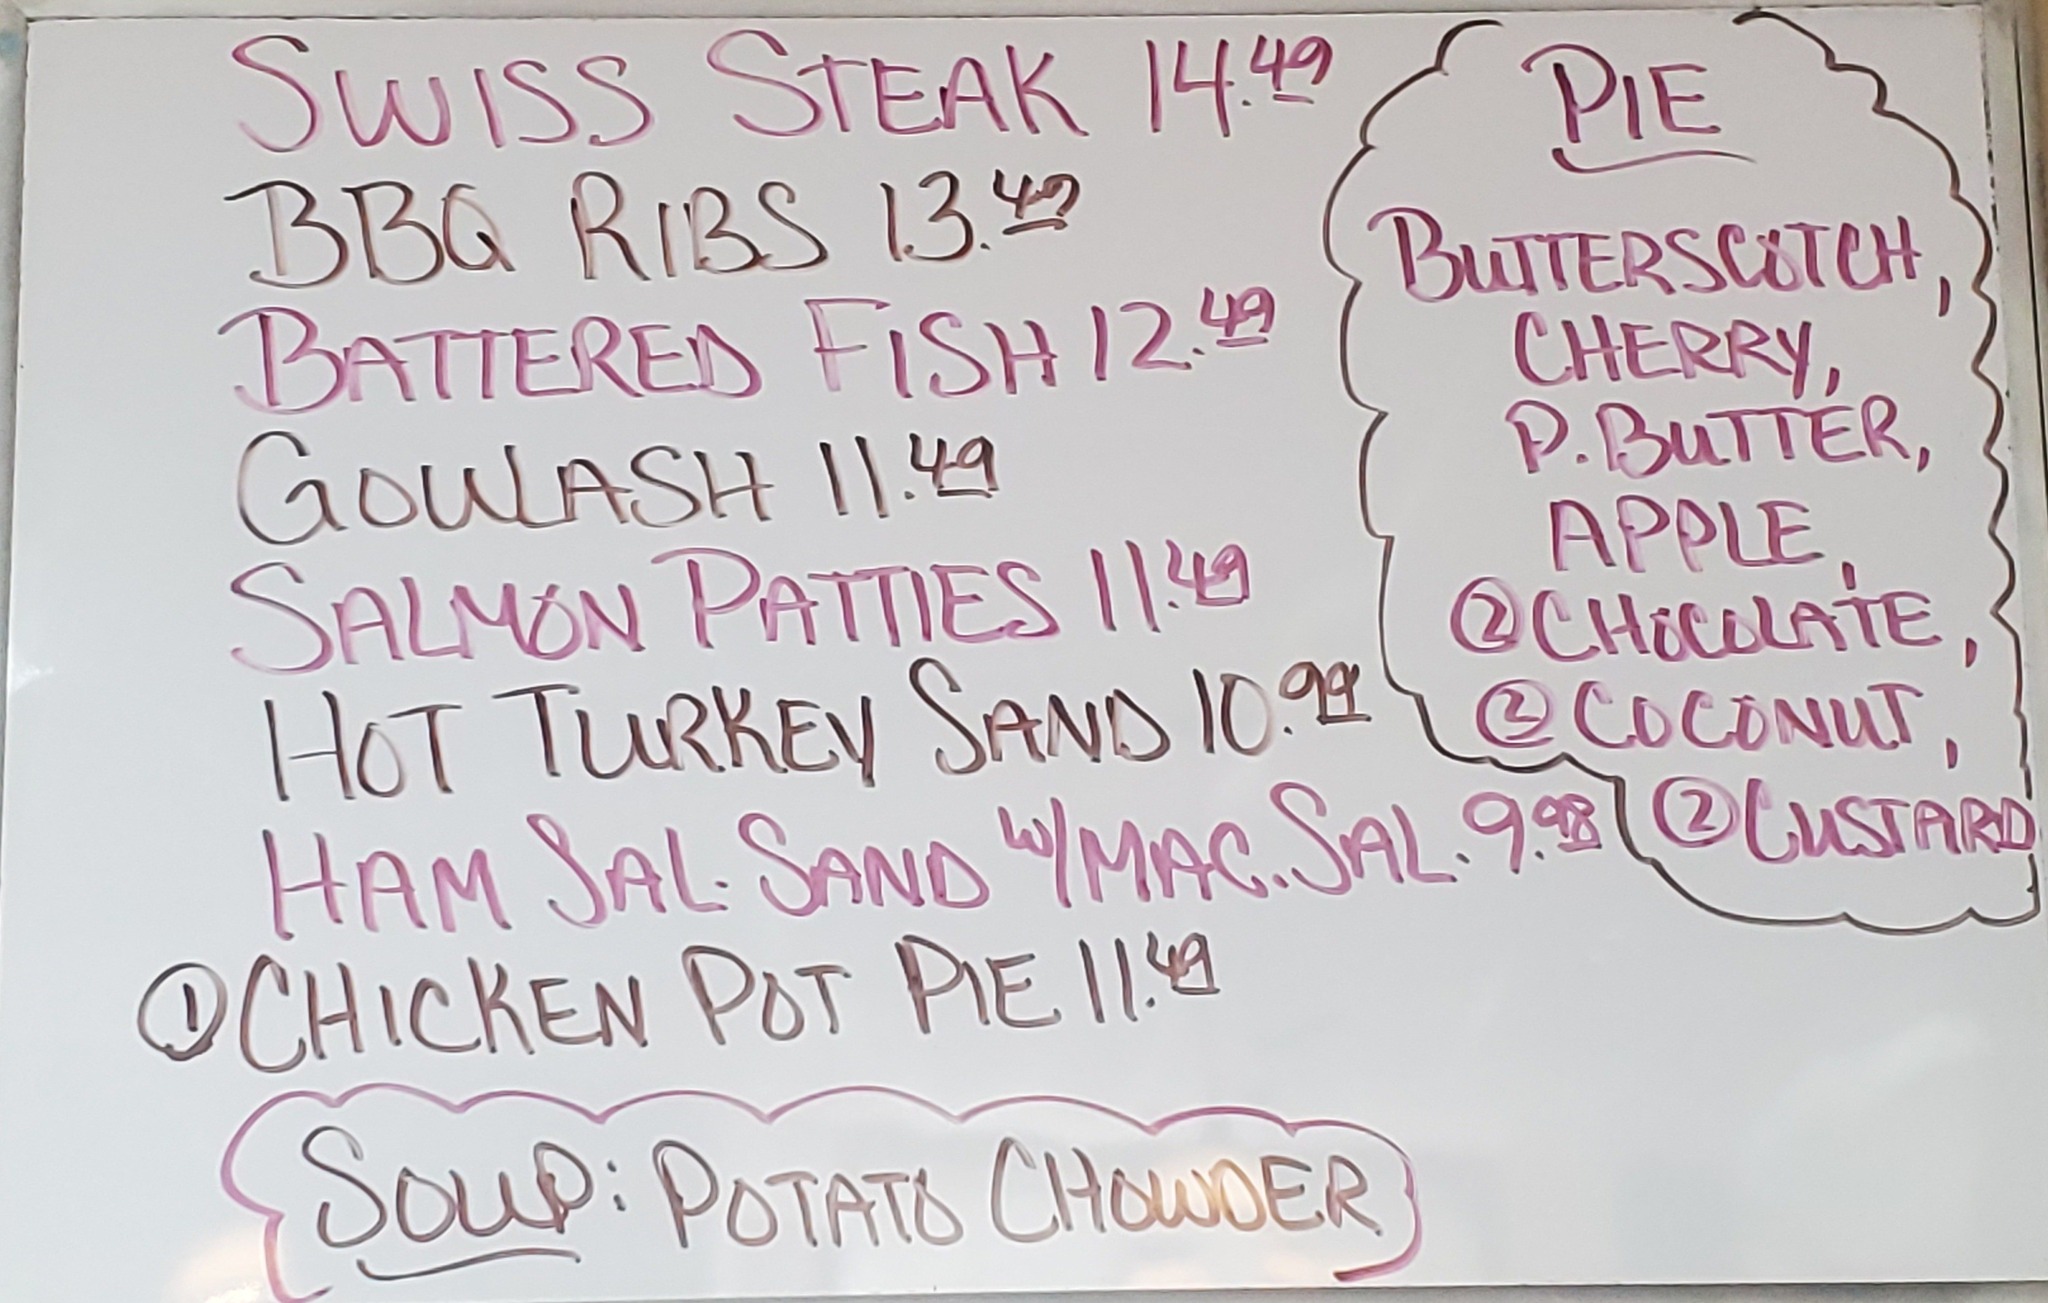 SWISS STEAK 14.49
BBQ RIBS 13.49
BATTERED FISH 12.49
GOWLASH 11.49
SALMON PATTIES 11.49
HOT TURKEY SAND 10.99
HAM SAL. SAND W/MAC. SAL. 9.98
① CHICKEN POT PIE 11.49
SOUP: POTATO CHOWDER
PIE
BUTTERSCOTCH,
CHERRY,
P. BUTTER,
APPLE,
② CHOCOLATE,
② COCONUT,
② CUSTARD